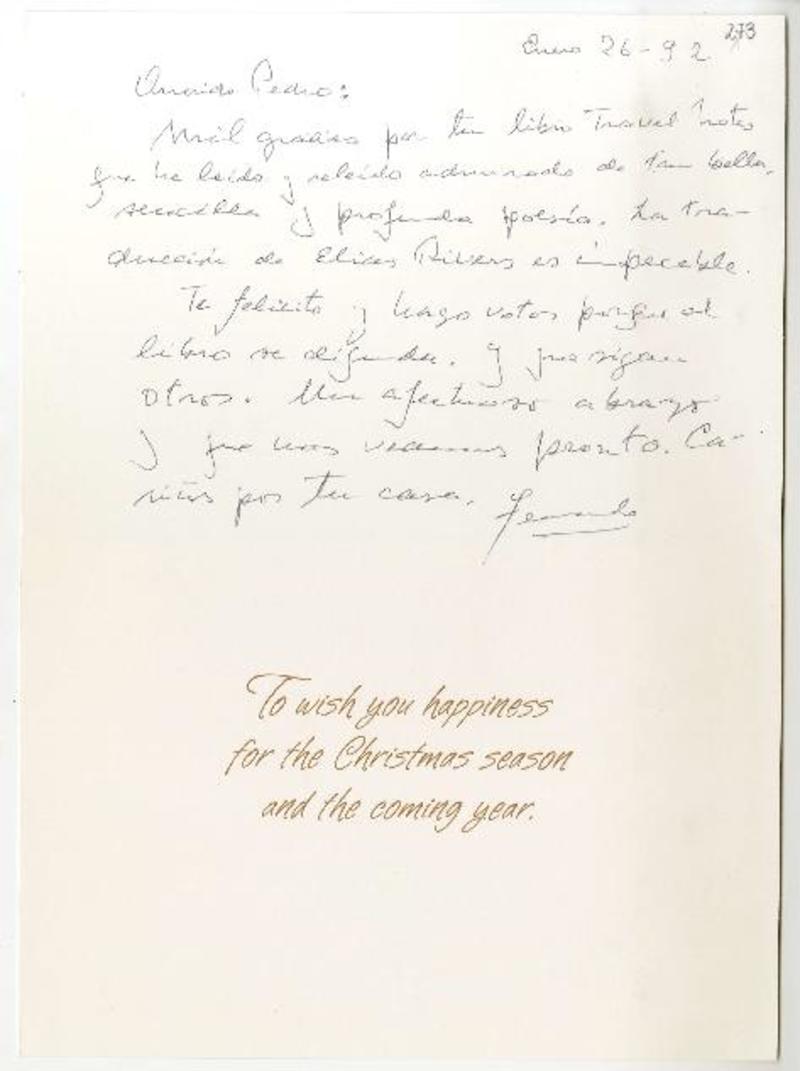 273
Enero 26-92
Querido Pedro:
Mil gracias por tu libro Travel Notes
que he leído y releído admirado de tan bella,
sencilla y profunda poesía. La tra-
ducción de Elias Rivers es impecable.
Te felicito y hago votos porque el
libro se difunda. Y que sigan
otros. Un afectuoso abrazo
y que nos veamos pronto. Ca-
riños por tu casa. Fernando
To wish you happiness
for the Christmas season
and the coming year.